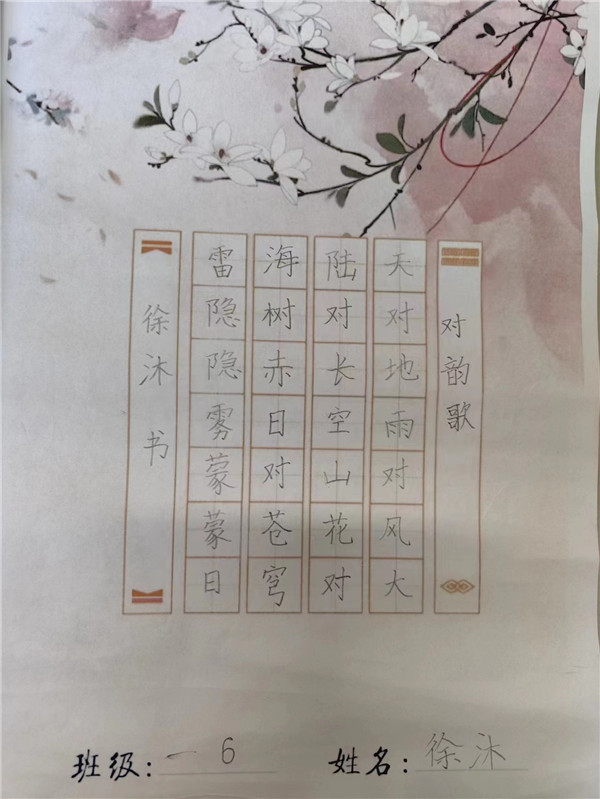 对韵歌
天对地雨对风大
陆对长空山花对
海树赤日对苍穹
雷隐隐雾蒙蒙日
徐沐书
班级：一6 姓名：徐沐